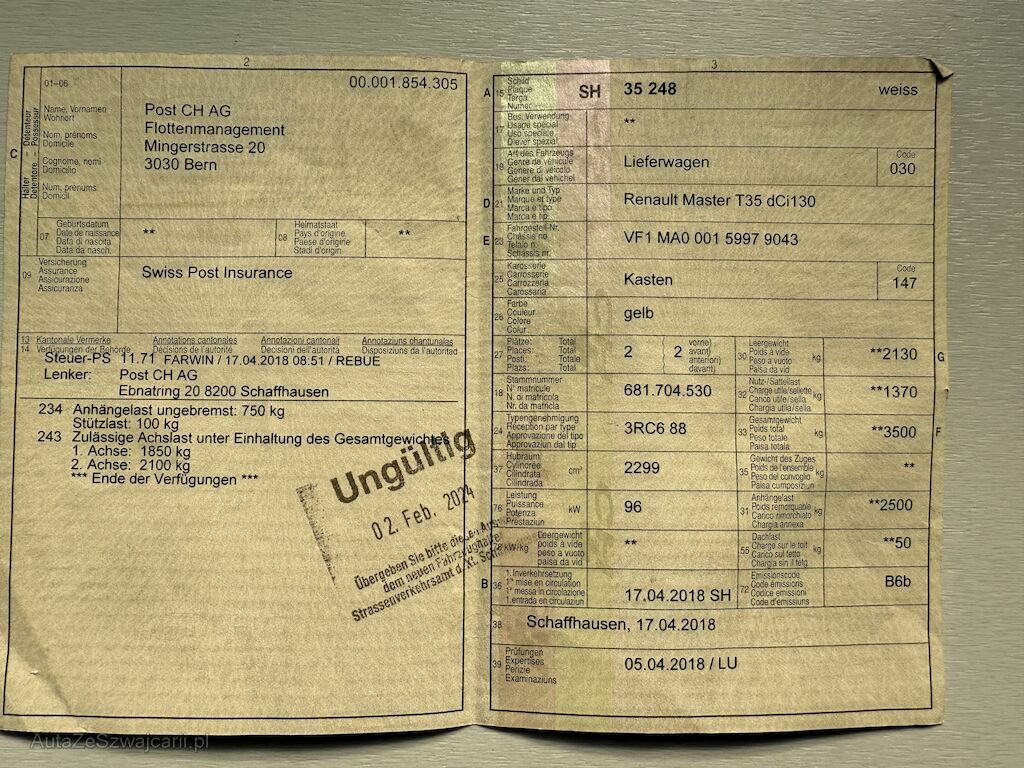 2
01–06
00.001.854.305
C
Halter – Détenteur
Detentore – Possessur
Name, Vornamen
Wohnort
Nom, prénoms
Domicile
Cognome, nomi
Domicilio
Num, prenums
Domicil
Post CH AG
Flottenmanagement
Mingerstrasse 20
3030 Bern
07
Geburtsdatum
Date de naissance
Data di nascita
Data da nasch.
**
08
Heimatstaat
Pays d'origine
Paese d'origine
Stadi d'origin
**
09
Versicherung
Assurance
Assicurazione
Assicuranza
Swiss Post Insurance
13 Kantonale Vermerke Annotations cantonales Annotazioni cantonali Annotaziuns chantunalas
14 Verfügungen der Behörde Décisions de l'autorité Decisioni dell'autorità Disposiziuns da l'autoritad
Steuer-PS 11.71 FARWIN / 17.04.2018 08:51 / REBUE
Lenker: Post CH AG
Ebnatring 20 8200 Schaffhausen
234 Anhängelast ungebremst: 750 kg
Stützlast: 100 kg
243 Zulässige Achslast unter Einhaltung des Gesamtgewichtes
1. Achse: 1850 kg
2. Achse: 2100 kg
*** Ende der Verfügungen ***
Ungültig
02. Feb. 2024
Übergeben Sie bitte diesen
dem neuen Fahrzeughalter
Strassenverkehrsamt d. Kt.
3
A 15
Schild
Plaque
Targa
Numer
SH 35 248 weiss
17
Bes. Verwendung
Usage spécial
Uso speciale
Diever spezial
**
19
Art des Fahrzeugs
Genre de véhicule
Genere di veicolo
Gener dal vehichel
Lieferwagen
Code
030
D 21
Marke und Typ
Marque et type
Marca e tipo
Marca e tip
Renault Master T35 dCi130
E 23
Fahrgestell-Nr.
Châssis no
Telaio n.
Schassis nr.
VF1 MA0 001 5997 9043
25
Karosserie
Carrosserie
Carrozzeria
Carossaria
Kasten
Code
147
26
Farbe
Couleur
Colore
Colur
gelb
27
Plätze: Total
Places: Total
Posti: Totale
Plazs: Total
2
2
vorne)
avant)
anteriori)
davant)
30
Leergewicht
Poids à vide
Peso a vuoto
Paisa da vid
kg
**2130
G
18
Stammnummer
N° matricule
N. di matricola
Nr. da matricla
681.704.530
32
Nutz-/Sattellast
Charge utile/sellette
Carico utile/sella
Chargia utila/sella
kg
**1370
24
Typengenehmigung
Réception par type
Approvazione del tipo
Approvaziun dal tip
3RC6 88
33
Gesamtgewicht
Poids total
Peso totale
Paisa totala
kg
**3500
F
37
Hubraum
Cylindrée
Cilindrata
Cilindrada
cm³
2299
35
Gewicht des Zuges
Poids de l'ensemble
Peso del convoglio
Paisa cumposiziun
kg
**
76
Leistung
Puissance
Potenza
Prestaziun
kW
96
31
Anhängelast
Poids remorquable
Carico rimorchiato
Chargia annexa
kg
**2500
78
kW/kg
Leergewicht
poids à vide
peso a vuoto
paisa da vid
**
55
Dachlast
Charge sur le toit
Carico sul tetto
Chargia sin il tetg
kg
**50
B 36
1. Inverkehrsetzung
1re mise en circulation
1a messa in circolazione
1. entrada en circulaziun
17.04.2018 SH
72
Emissionscode
Code émissions
Codice emissioni
Code d'emissiuns
B6b
38
Schaffhausen, 17.04.2018
39
Prüfungen
Expertises
Perizie
Examinaziuns
05.04.2018 / LU
AutaZeSzwajcarii.pl